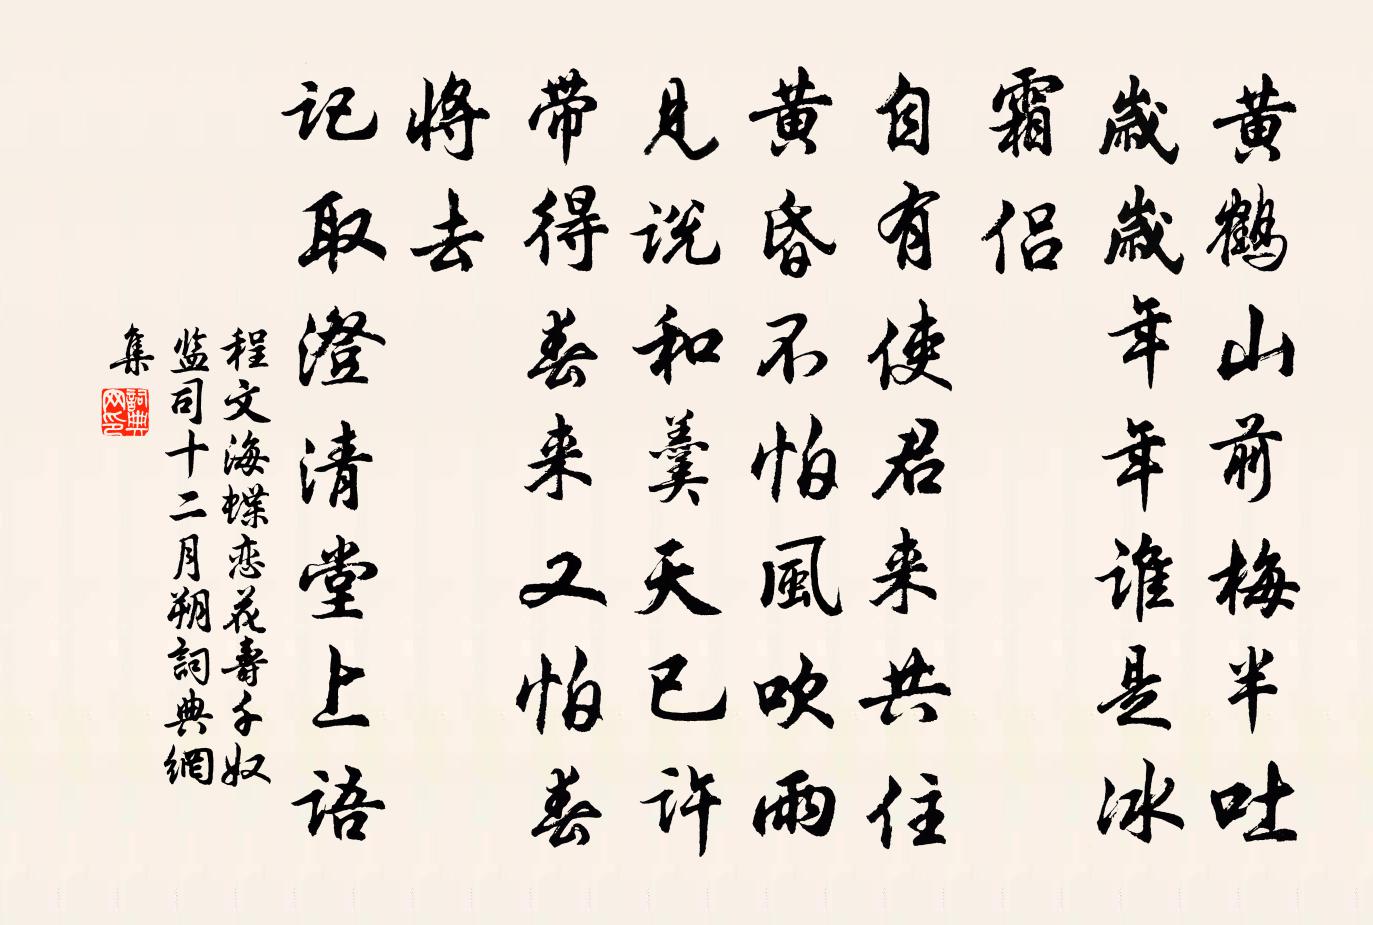 黄鶴山前梅半吐
歲歲年年誰是冰
霜侣
自有使君来共住
黄昏不怕風吹雨
見说和羹天已许
带得春来又怕春
將去
记取澄清堂上语
程文海蝶恋花壽千奴
监司十二月朔詞典網
集
詞典
网印